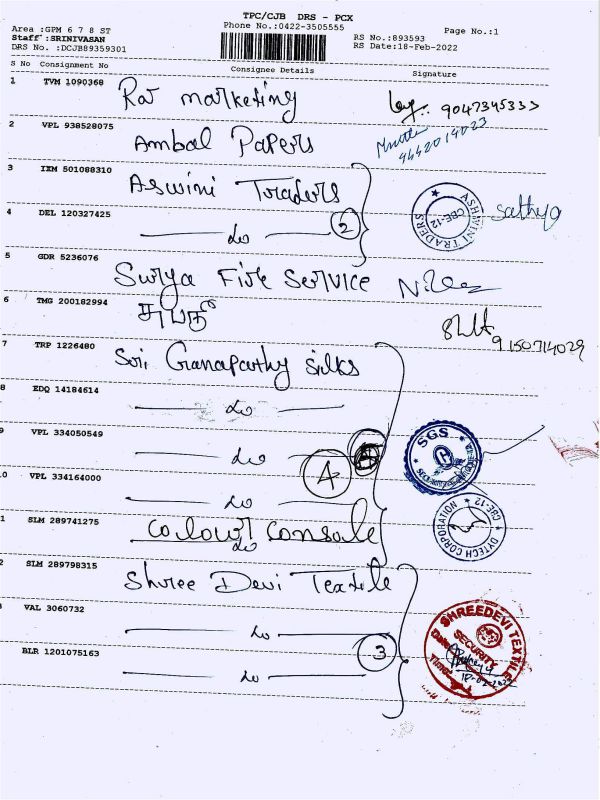 TPC/CJB DRS - PCX
Area :GPM 6 7 8 ST
Phone No.:0422-3505555
Page No.:1
Staff :SRINIVASAN
RS No.:893593
DRS No. :DCJB89359301
RS Date:18-Feb-2022
S No Consignment No Consignee Details Signature
1 TVM 1090368 Raj marketing 9047345333
2 VPL 938528075 Ambal Papers 9442014023
3 IXM 501088310 Aswini Traders
ASHWINI TRADERS CBE-12 sathya
4 DEL 120327425 do 2
5 GDR 5236076 Surya Fire Service
6 TMG 200182994 9150714029
7 TRP 1226480 Sri Ganapathy silks
8 EDQ 14184614 do
9 VPL 334050549 do
SGS
4
0 VPL 334164000 do
1 SLM 289741275 Colour Console
do
DYTECH CORPORATION CBE-12
2 SLM 289798315 Shree Devi Textile
3 VAL 3060732 do
SHREEDEVI TEXTILE
SECURITY
3
BLR 1201075163 do
18-02-2022